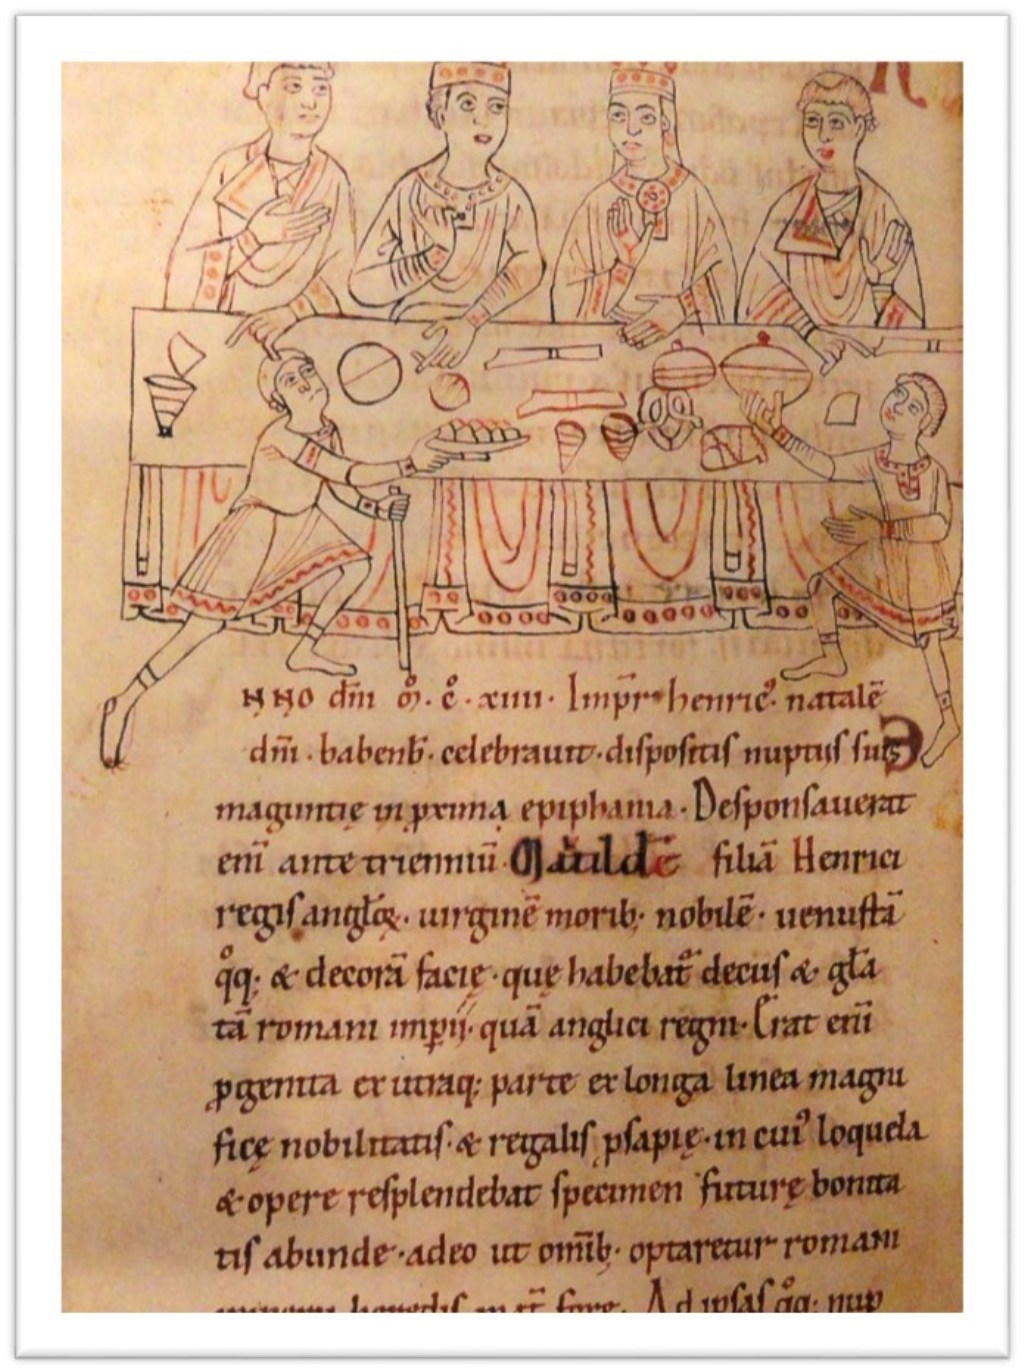 NNO dñi .ꝳ. c̊. xiiii. Impr̄ henricꝰ natalē
dñi. babenb̄. celebrauit. dispositis nuptiis suis
maguntię in ꝓxima epiphania. Desponsauerat
eni̅ ante trienniū Matildē filiā Henrici
regis angloꝝ. uirginē morib; nobilē. uenustā
qͦq; & decorā facie. que habebat̄ decus & gl̄a
tā romani imp̄ii. quā anglici regni. Erat eni̅
ꝓgenita ex utraq; parte ex longa linea magni
ficę nobilitatis. & regalis ꝓsapię. in cuiꝰ loquela
& opere resplendebat specimen future bonita
tis abunde. adeo ut om̅ib; optaretur romani
heredis Ad ipsas qͦq; nup